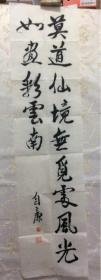 莫道仙境無覓處風光
如畫彩雲南
自康